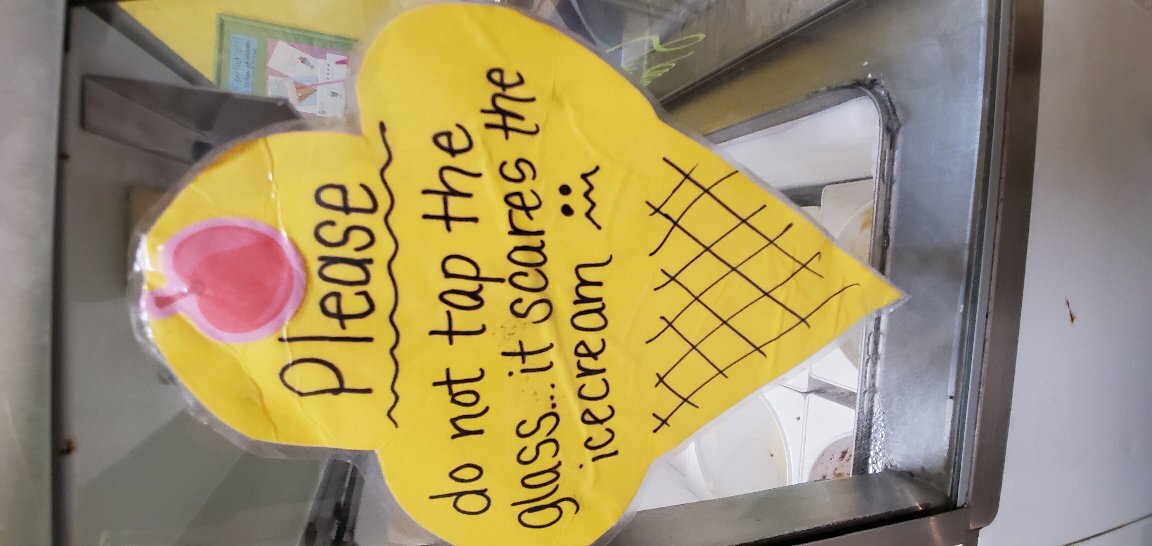 Please
do not tap the
glass...it scares the
icecream